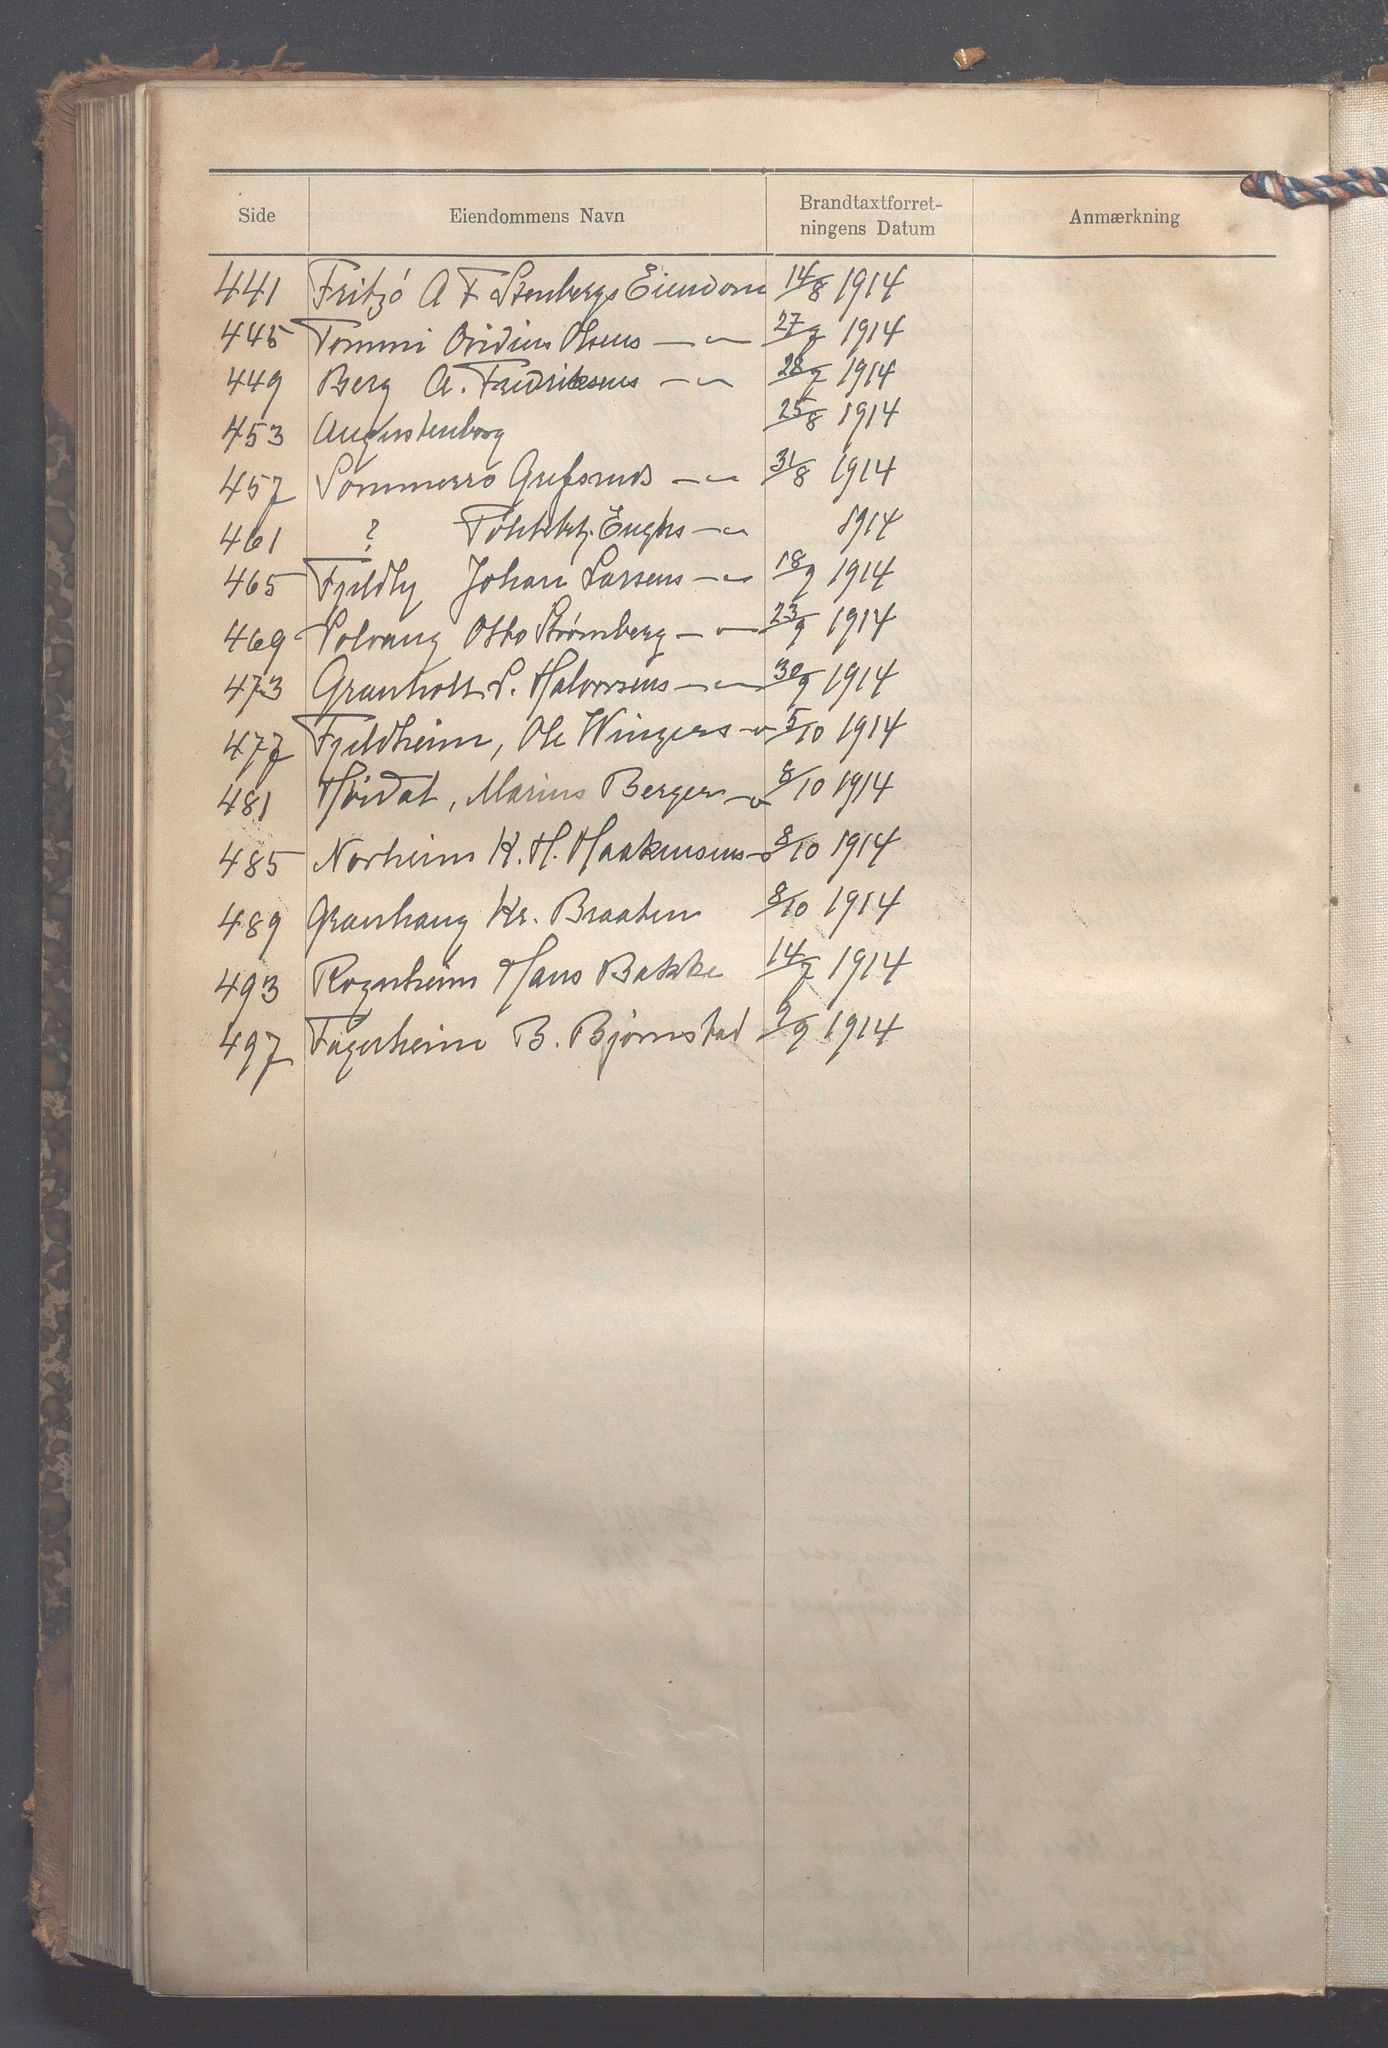 Side Eiendommens Navn Brandtaxtforret-
ningens Datum Anmærkning
441 Fritzö A F Stenbergs Eiendom 14/8 1914
445 Tommi Ovidius Olsens — " — 27/7 1914
449 Berg A. Fredriksens — " — 28/7 1914
453 Augustenborg 25/8 1914
457 Sommerro Grefsruds — " — 31/8 1914
461 ? Enghs — " — 1914
465 Fjeldly Johan Larsens — " — 18/9 1914
469 Solvang Otto Strømberg — " — 23/9 1914
473 Granholt S. Halvorsens — " — 30/9 1914
477 Fjeldheim, Ole Wingers — " — 5/10 1914
481 Hördat, Marius Bergers — " — 8/10 1914
485 Norheim K. H. Haakensens — " — 8/10 1914
489 Granhaug Kr. Braaten 8/10 1914
493 Rognheim Hans Bakke 14/7 1914
497 Fagerheim B. Bjørnstad 9/9 1914